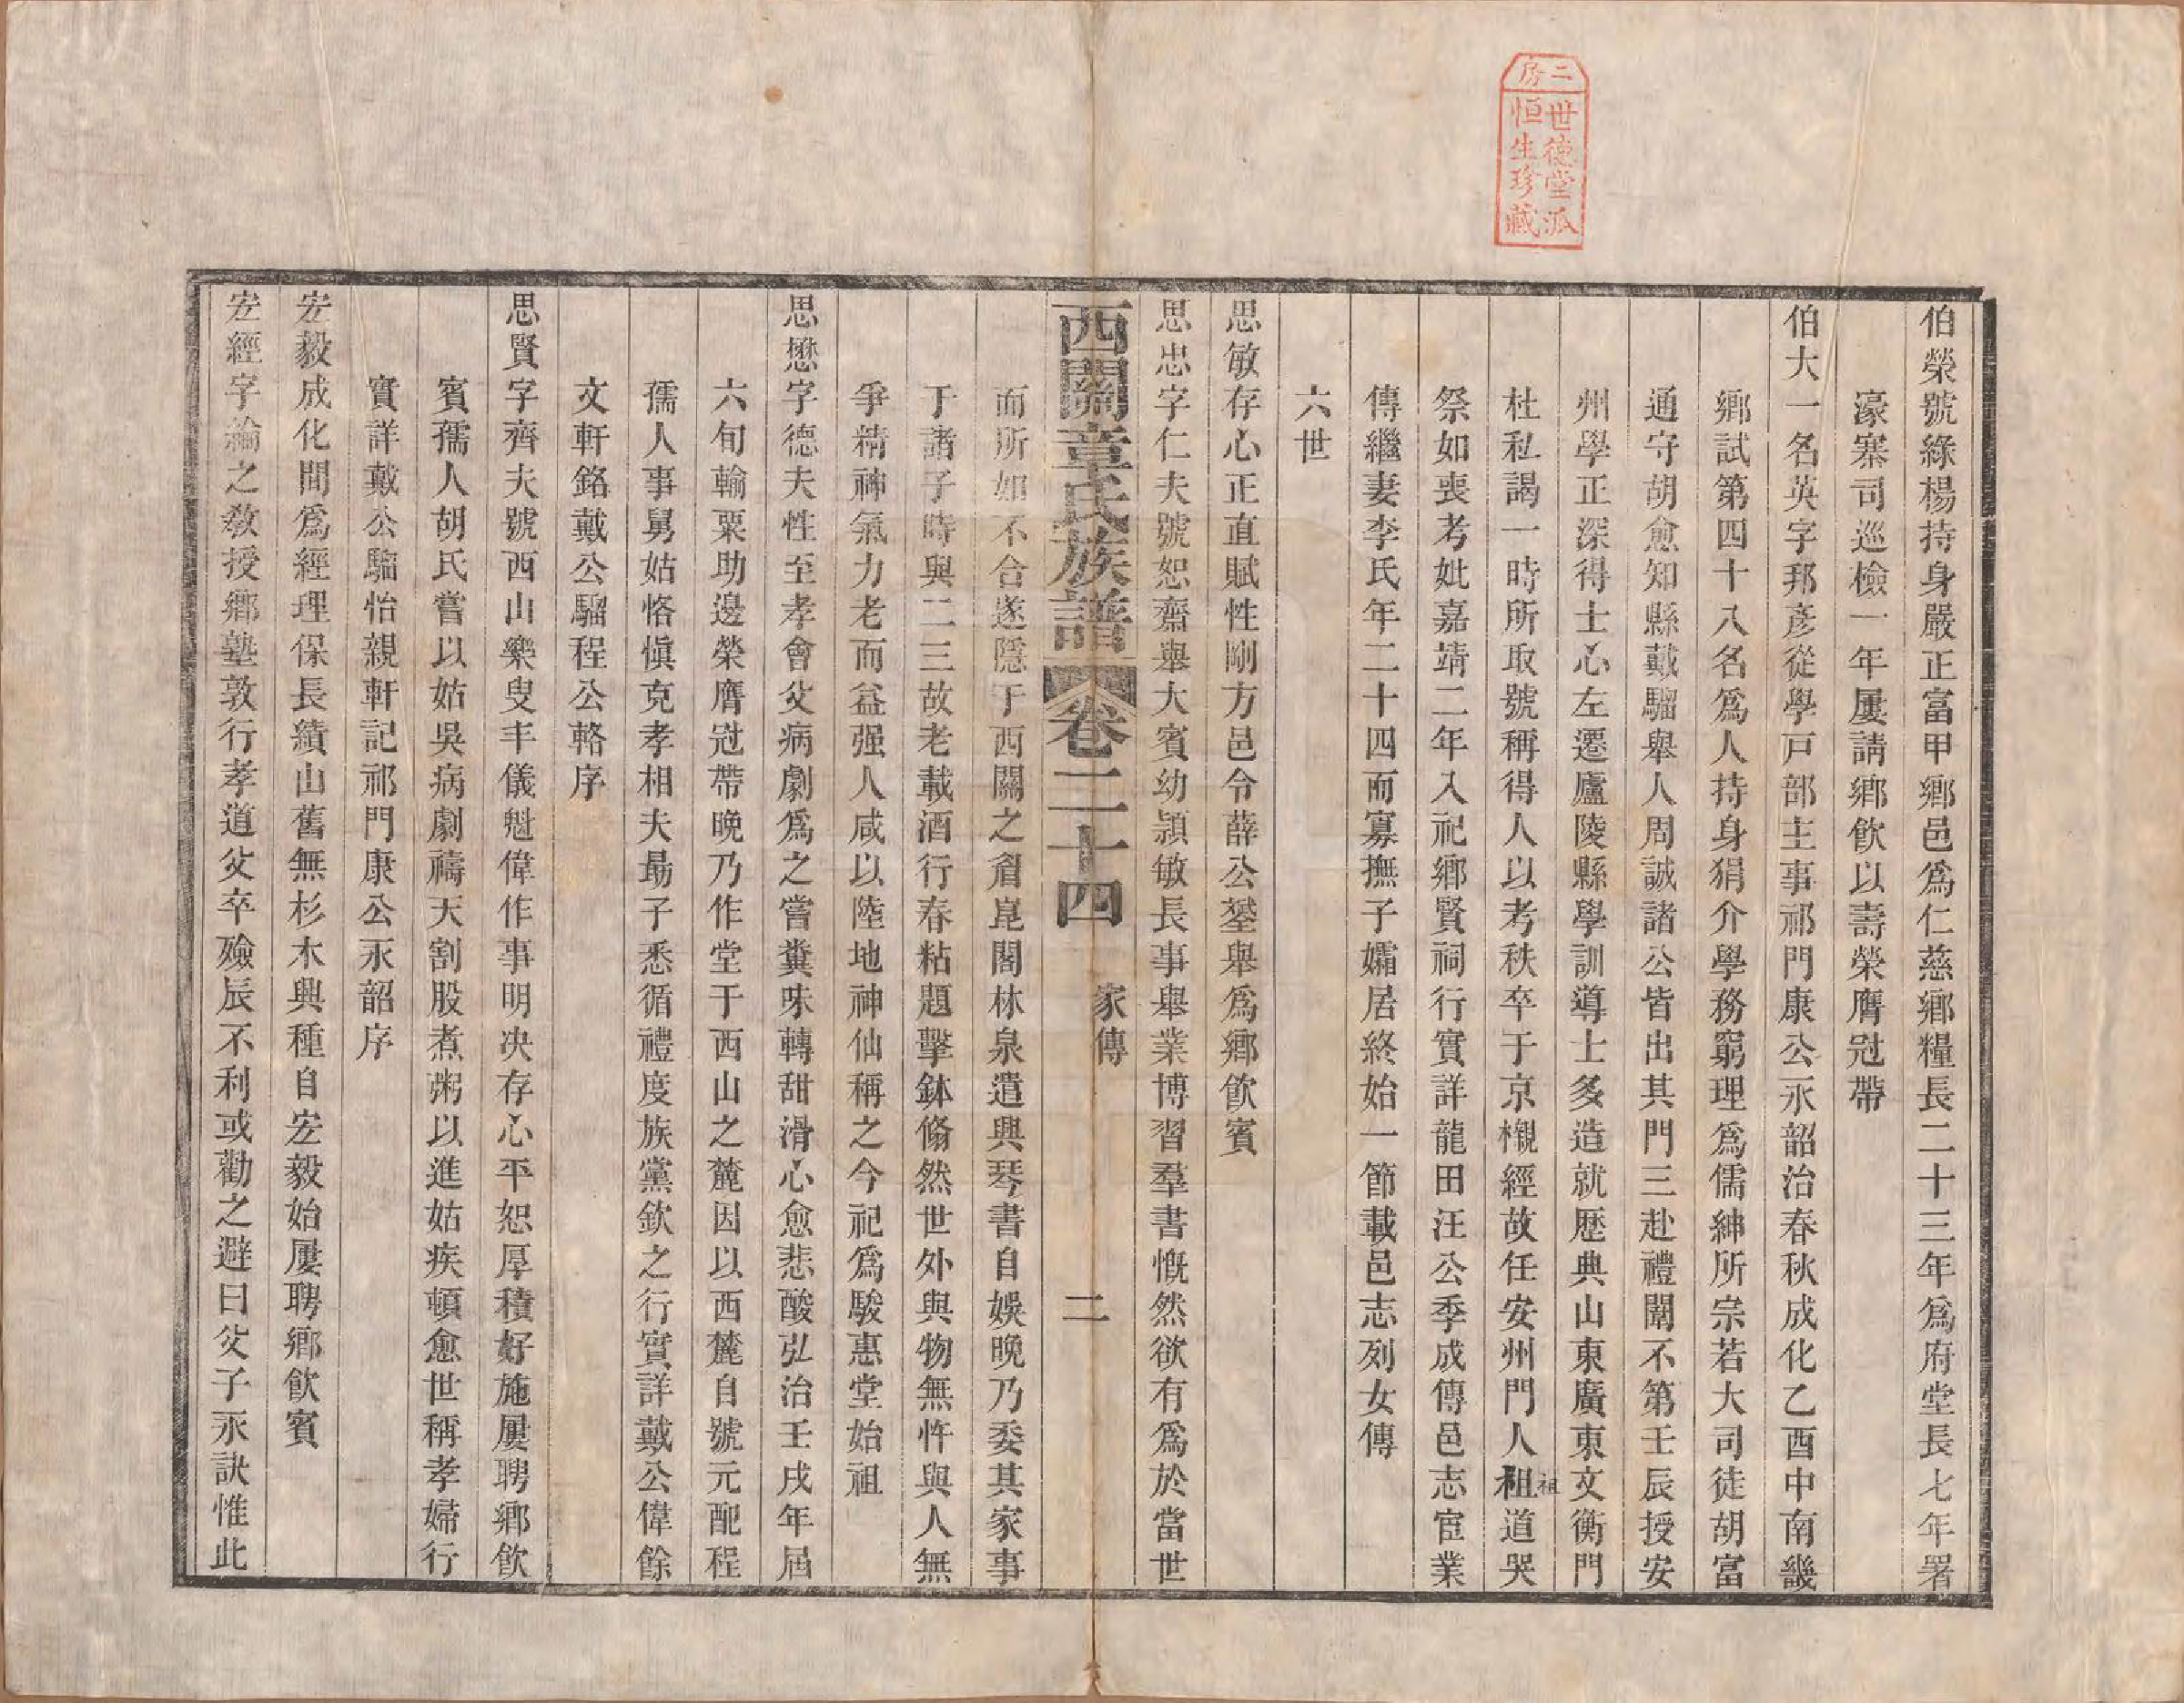 二房
世德堂派
恒生珍藏
伯榮號綠楊持身嚴正富甲鄉邑爲仁慈鄉糧長二十三年爲府堂長七年署
濠寨司巡檢一年屢請鄉飲以壽榮膺冠帶
伯大一名英字邦彥從學戸部主事祁門康公永韶治春秋成化乙酉中南畿
鄉試第四十八名爲人持身狷介學務窮理爲儒紳所宗若大司徒胡富
通守胡愈知縣戴騮舉人周誠諸公皆出其門三赴禮闈不第壬辰授安
州學正深得士心左遷廬陵縣學訓導士多造就歷典山東廣東文衡門
杜私謁一時所取號稱得人以考秩卒于京櫬經故任安州門人祖祖道哭
祭如喪考妣嘉靖二年入祀鄉賢祠行實詳龍田汪公季成傳邑志宦業
傳繼妻李氏年二十四而寡撫子孀居終始一節載邑志列女傳
六世
思敏存心正直賦性剛方邑令薛公鋆舉爲鄉飲賓
思忠字仁夫號恕齋舉大賓幼頴敏長事舉業博習羣書慨然欲有爲於當世
西關章氏族譜 卷二十四 家傳 二
而所如不合遂隱于西關之眉崑閣林泉遣興琴書自娛晚乃委其家事
于諸子時與二三故老載酒行春粘題擊鉢翛然世外與物無忤與人無
爭精神氣力老而益强人咸以陸地神仙稱之今祀爲駿惠堂始祖
思懋字德夫性至孝會父病劇爲之嘗糞味轉甜滑心愈悲酸弘治壬戌年屆
六旬輸粟助邊榮膺冠帶晚乃作堂于西山之麓因以西麓自號元配程
孺人事舅姑恪愼克孝相夫勗子悉循禮度族黨欽之行實詳戴公偉餘
文軒銘戴公騮程公輅序
思賢字齊夫號西山樂叟丰儀魁偉作事明决存心平恕厚積好施屢聘鄉飲
賓孺人胡氏嘗以姑吳病劇禱天割股煮粥以進姑疾頓愈世稱孝婦行
實詳戴公騮怡親軒記祁門康公永韶序
宏毅成化間爲經理保長績山舊無杉木興種自宏毅始屢聘鄉飲賓
宏經字綸之教授鄉塾敦行孝道父卒殮辰不利或勸之避曰父子永訣惟此